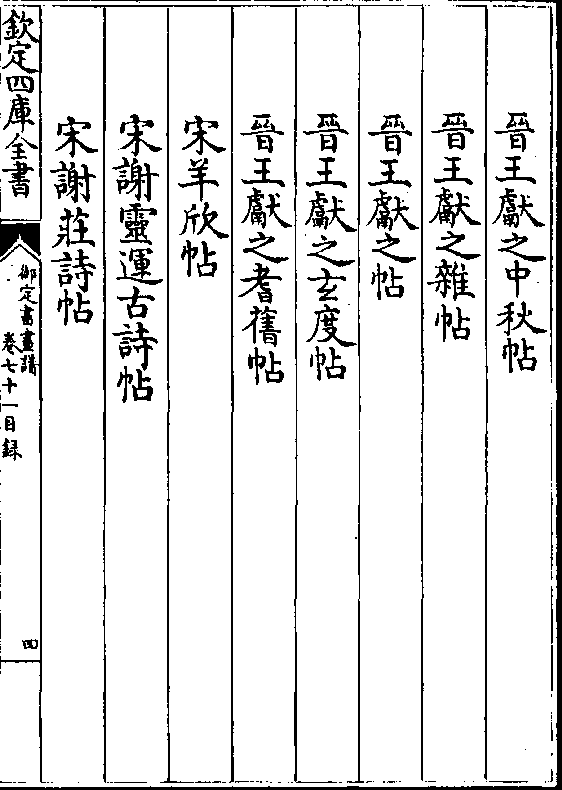 晉王獻之中秋帖
晉王獻之雜帖
晉王獻之帖
晉王獻之玄度帖
晉王獻之耆舊帖
宋羊欣帖
宋謝靈運古詩帖
宋謝莊詩帖
欽定四庫全書
御定書畫譜
卷七十一目録
四